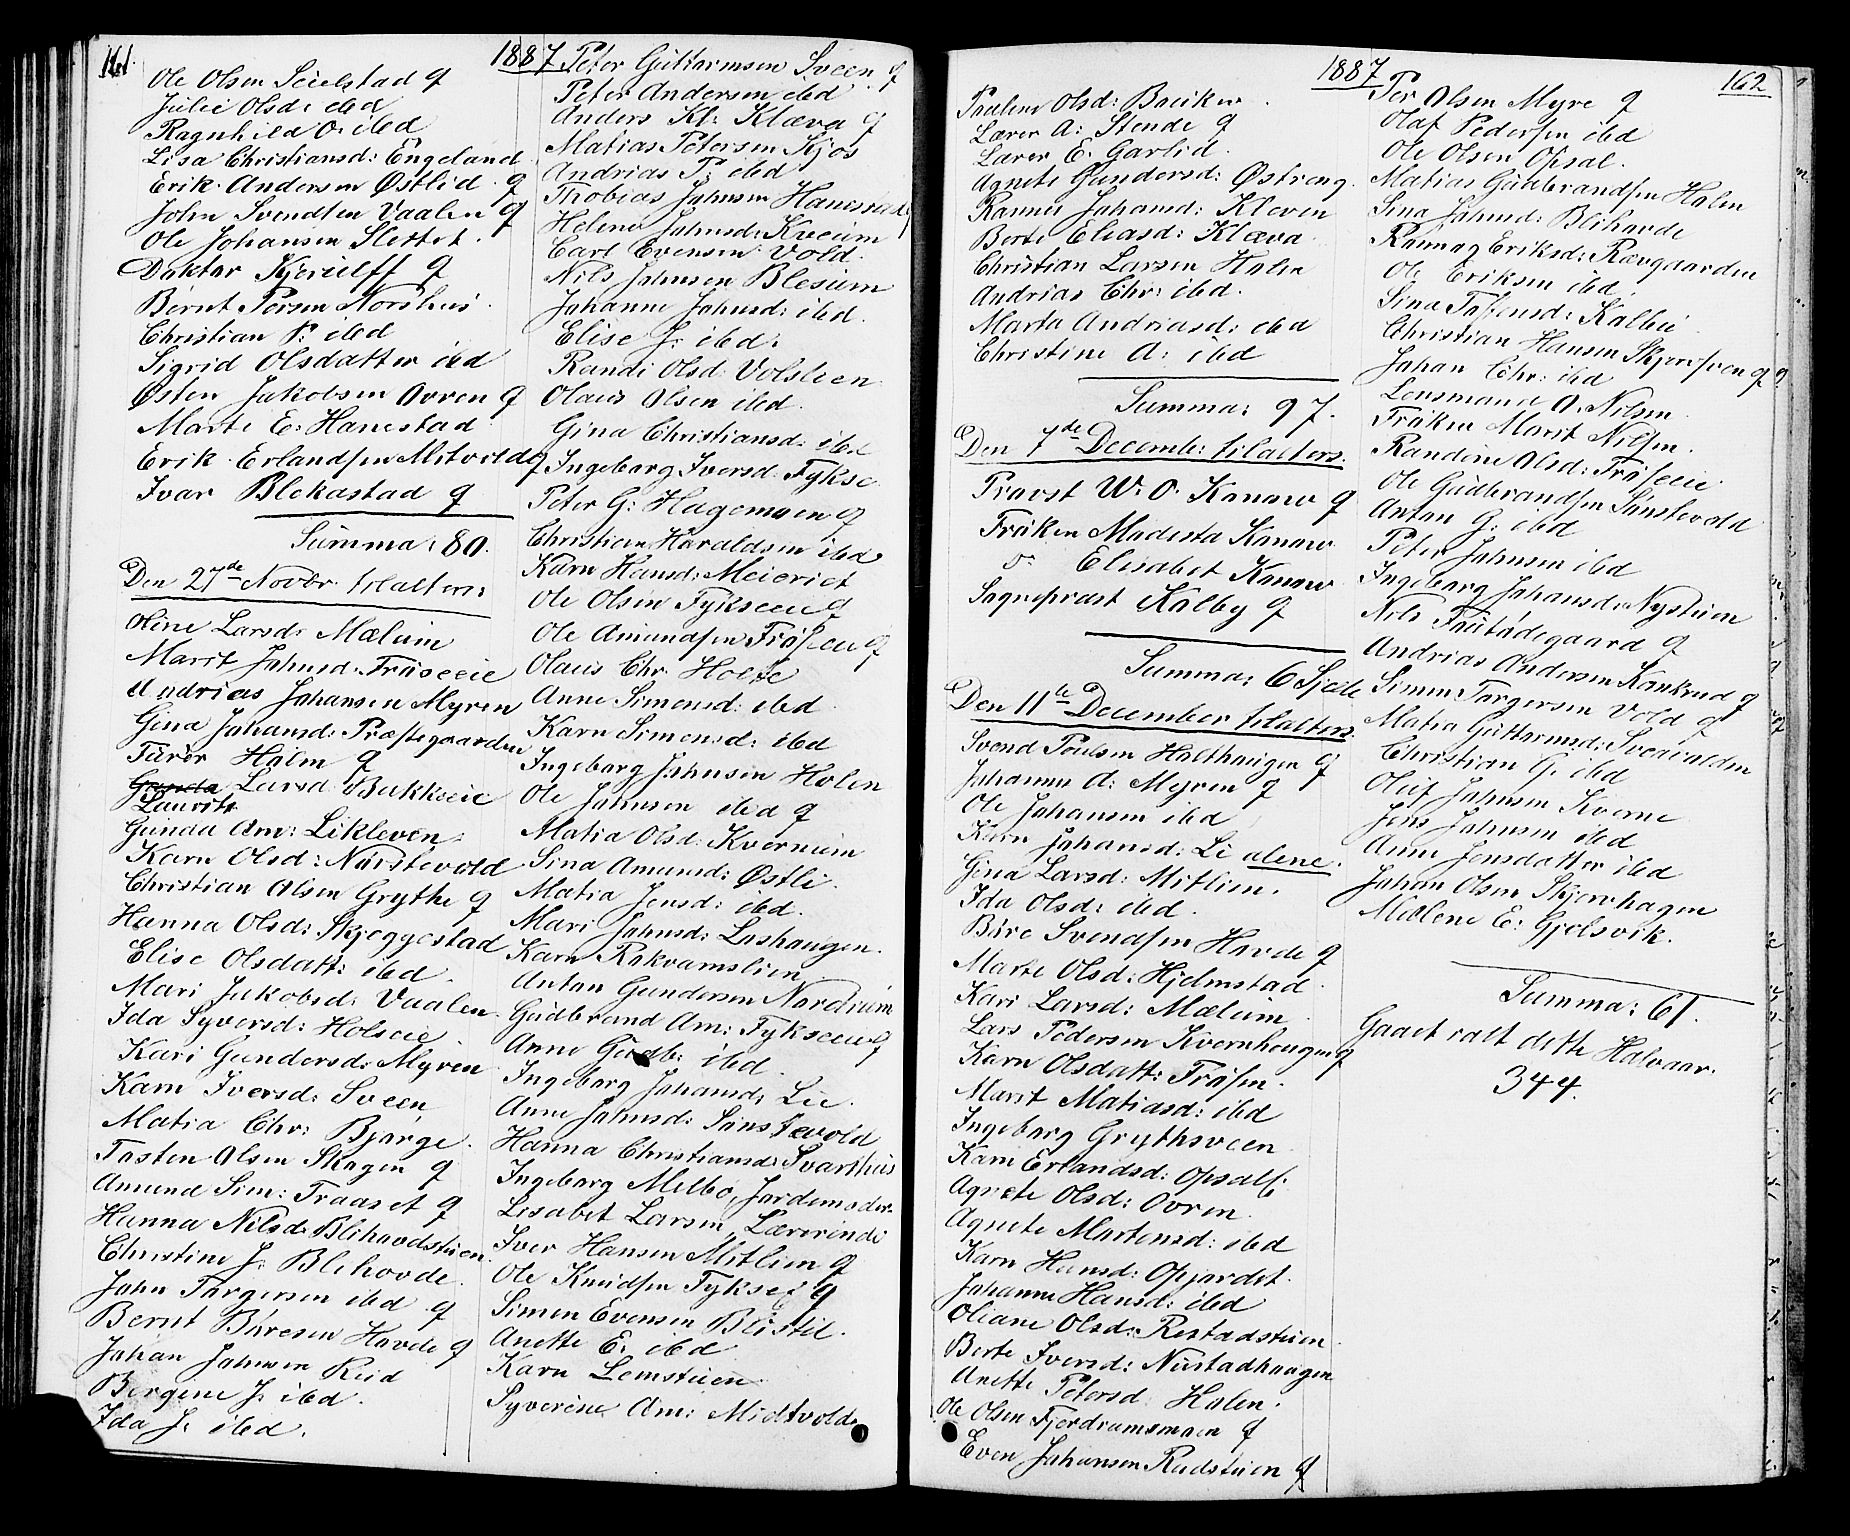 161.
1887
Ole Olsen Seielstad g
Julie Olsd: ibd
Ragnhild O: ibd
Lisa Christiansd: Engeland
Erik Andersen Østlid g
John Svendsen Vaalen g
Ole Johansen Slettet.
Doktor Kjerulff g
Bernt Persen Norshus.
Christian P: ibd
Sigrid Olsdatter ibd
Østen Jakobsen Ovren g
Marte E: Hanestad
Erik Erlandsen Mitvolde g
Ivar Blekastad g
Summa: 80.
Den 27de Novbr. tilalters:
Oline Larsd: Mælum
Marit Johnsd: Fröseeie
Andreas Johansen Myren
Gina Johansd: Præstegaarden
Turer Holm g
Larsd: Bakkeeie
Laurits
Gunda Am: Likleven.
Karn Olsd: Nurstevold
Christian Olsen Grythe g
Hanna Olsd: Skjeggestad
Elise Olsdatt: ibd.
Mari Jakobsd: Vaalen.
Ida Syversd: Holseie
Kari Gundersd: Myren
Karn Iversd: Sveen
Matia Chr: Bjørge.
Tosten Olsen Skogen g
Amund Sim: Traaset g
Hanna Nilsd: Blihovdstuen
Christine J: Blihovde.
John Torgersen ibd g
Bernt Børesen Hovde g
Johan Johnsen Rud
Bergene J: ibd.
Ida J: ibd.
Peter Guttormsen Sveen g
Peter Andersen ibd
Anders Kl: Klæva g
Matias Petersen Kjos
Andrias P: ibd
Thobias Johnsen Hanestad g
Helene Johnsd: Kveum
Carl Evensen Vold.
Nils Johnsen Blesum
Johanne Johnsd: ibd.
Elise J: ibd:
Randi Olsd: Volsleen
Olaus Olsen ibd.
Gina Christiansd: ibd
Ingeborg Iversd: Fykse
Peter G: Hagemoen g
Christian Haraldsen ibd
Karn Hansd: Meieriet
Ole Olsen Fykseeie g
Ole Amundsen Fröseeie g
Olaus Chr. Holte
Anne Simensd: ibd
Karn Simensd: ibd
Ingeborg Johnsen Holen
Ole Johnsen ibd g
Matia Olsd: Kvernum
Sina Amunsd: Østli.
Matia Jensd: ibd.
Mari Johnsd: Loshaugen.
Karn Rokvamslien
Anton Gundersen Nordrum
Gudbrand Am: Fykseeie g
Anne Gudb: ibd.
Ingeborg Johansd: Lie.
Anne Johnsd: Sanstevold
Hanna Christiansd: Svarthus
Ingeborg Melbo, Jordemoder.
Lisabet Larsen, Lærerinde
Iver Hansen Mitlien g
Ole Knudsen Fykse g
Simen Evensen Blistil.
Anette E: ibd
Karn Lemstuen
Syverine Am: Midtvolde
1887
162
Pauline Olsd: Bauker.
Lærer A: Stende g
Lærer E. Garlid.
Agnete Gundersd: Østreng.
Rannei Johansd: Kleven
Berte Eliasd: Klæva
Christian Larsen Holen
Andrias Chr: ibd.
Marta Andriasd: ibd
Christine A: ibd
Summa: 97.
Den 7de December tilalters.
Provst W. O. Konow g
Fröken Modesta Konow
o. Elisabet Konow
Sogneprest Kolby g
Summa: 6 Sjæle
Den 11te December tilalters.
Svend Poulsen Holthaugen g
Johannes A: Myren g
Ole Johansen ibd
Karn Johansd: Li alene.
Gina Larsd: Mitlien.
Ida Olsd: ibd.
Böre Svendsen Hovde g
Marte Olsd: Hjelmstad.
Kari Larsd: Mælum
Lars Pedersen Kvernhougen g
Karn Olsdatt: Frösen.
Marit Matiasd: ibd
Ingeborg Grythsveen
Karn Erlandsd: Opsal.
Agnete Olsd: Ovren.
Agnete Mortensd: ibd
Karn Hansd: Opjordet.
Johanne Hansd: ibd
Oliane Olsd: Restadstuen
Berte Iversd: Nustadhaugen
Anette Petersd: Holen.
Ole Olsen Fjerdrumsmoen g
Even Johansen Rudstuen g
Per Olsen Myre g
Olaf Pedersen ibd
Ole Olsen Opsal.
Matias Gudbrandsen Holen
Sina Johnsd: Blihovde
Rannog Eriksd: Rævgaarden
Ole Eriksen ibd.
Sina Tostensd: Kalleie
Christian Hansen Skjersveen g
Johan Chr: ibd
Lensmand O. Nilsen.
Fröken Marit Nilsen.
Randine Olsd: Fröseeie.
Ole Gudbrandsen Sanstevold
Anton G: ibd
Peter Johnsen ibd
Ingeborg Johansd: Nystuen
Nils Frutödegaard g
Andrias Andersen Konkrud g
Simen Torgersen Vold g
Matia Guttormsd: Sveadalen
Christian G: ibd
Oluf Johnsen Kverne
Jens Johnsen ibd
Anne Jensdatter ibd
Johan Olsen Skjerrhagen
Mælene E: Gjelsvik.
Summa: 61.
Gaaet ialt dette Halvaar.
344.